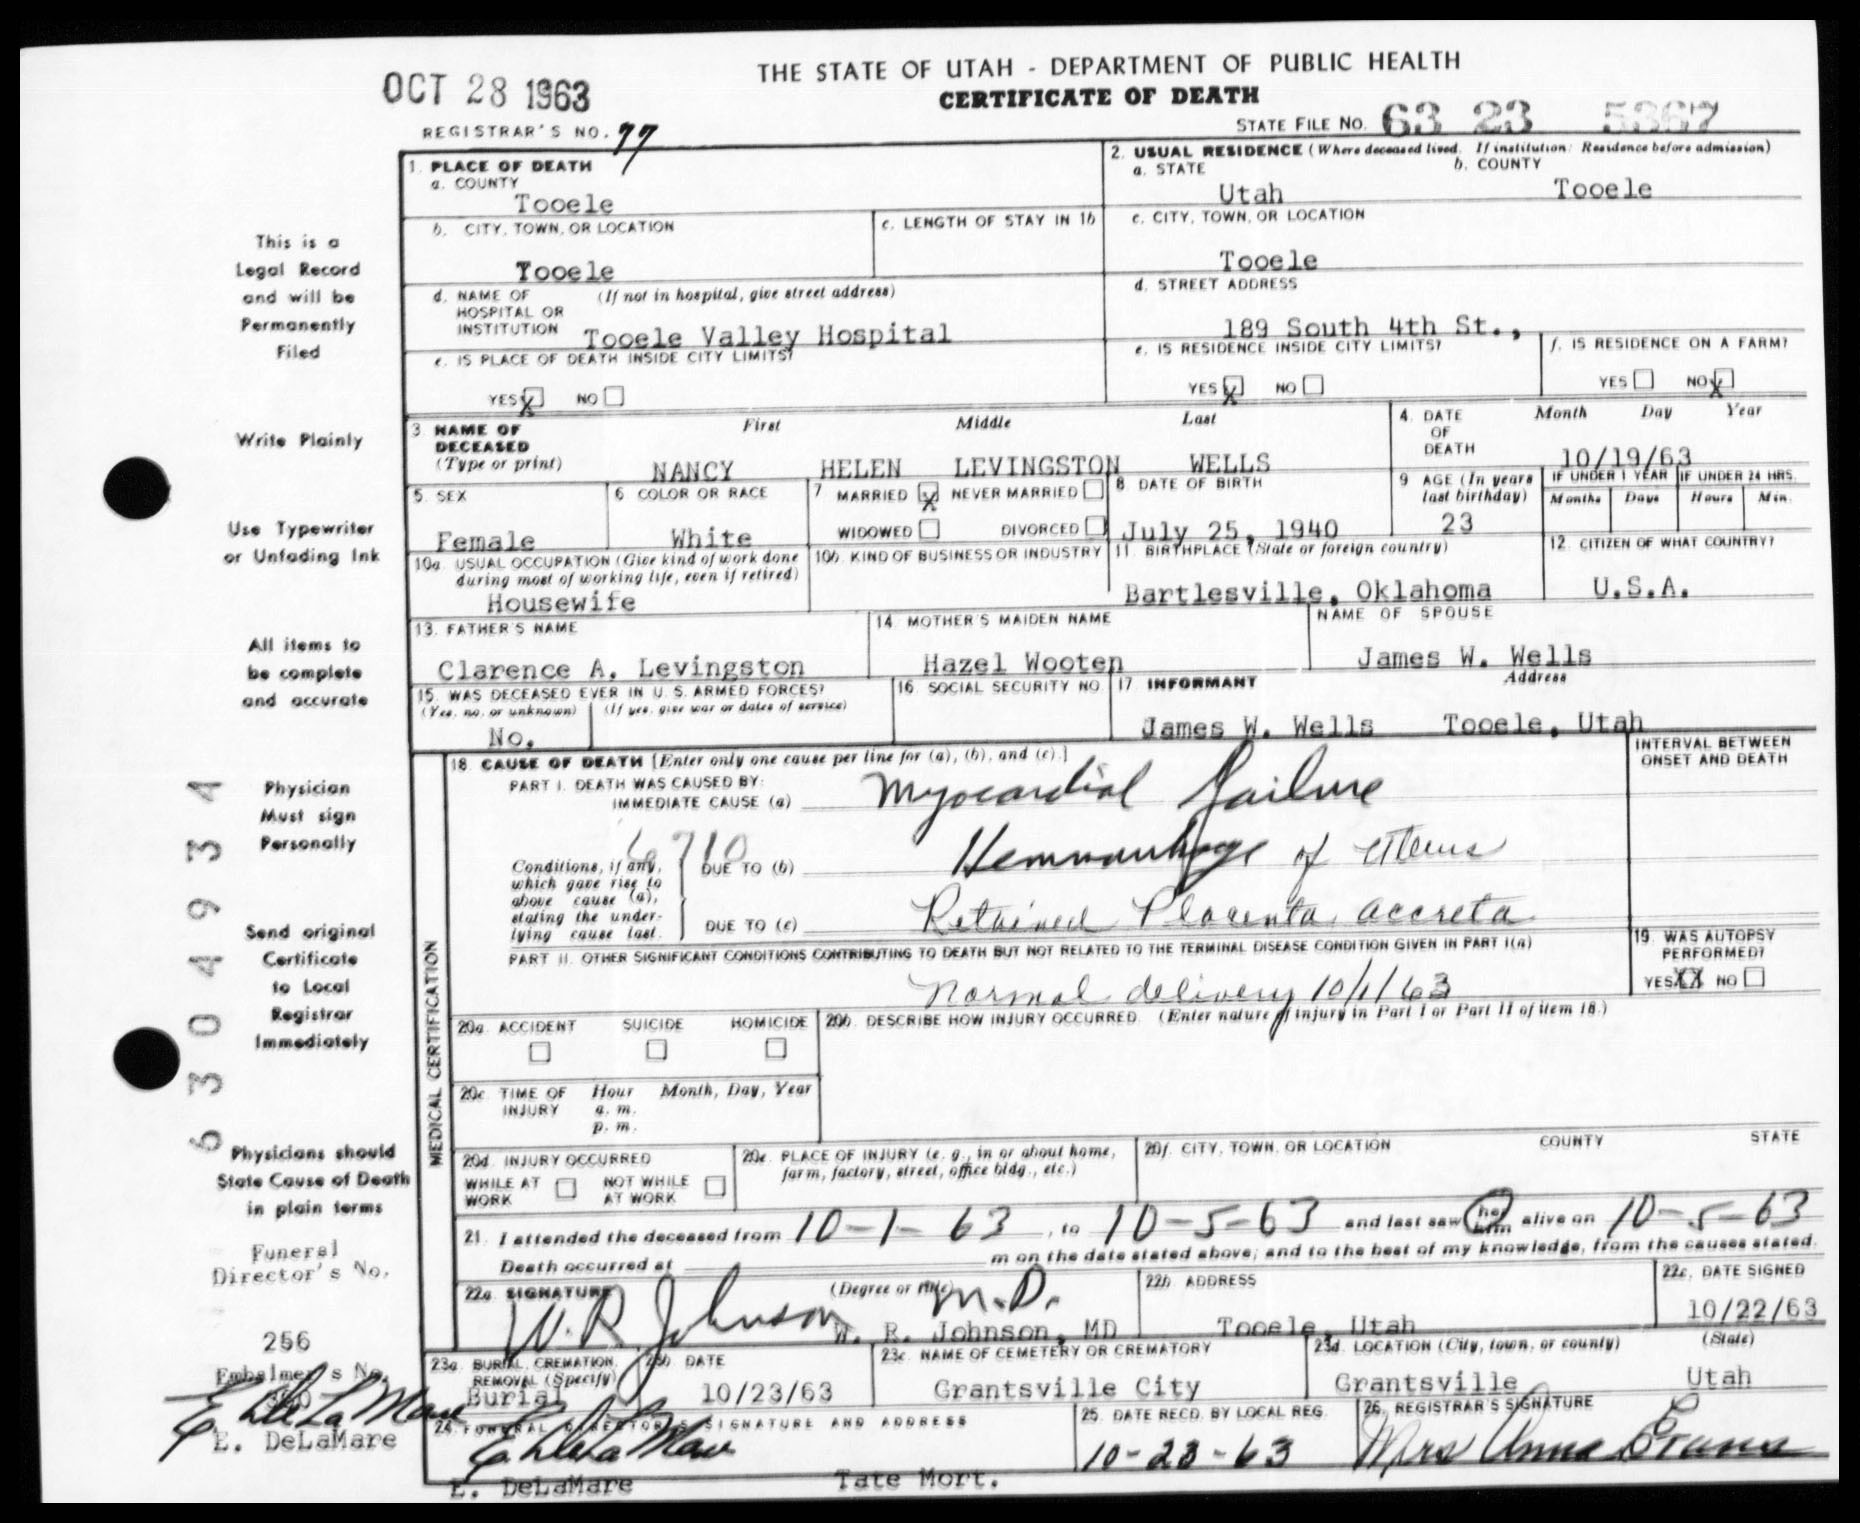 OCT 28 1963
THE STATE OF UTAH - DEPARTMENT OF PUBLIC HEALTH
CERTIFICATE OF DEATH
REGISTRAR'S NO. 77
STATE FILE NO. 63 23 5367
1. PLACE OF DEATH
a. COUNTY
Tooele
2. USUAL RESIDENCE (Where deceased lived. If institution: Residence before admission)
a. STATE
Utah
b. COUNTY
Tooele
b. CITY, TOWN, OR LOCATION
Tooele
c. LENGTH OF STAY IN 1b
c. CITY, TOWN, OR LOCATION
Tooele
d. NAME OF HOSPITAL OR INSTITUTION
(If not in hospital, give street address)
Tooele Valley Hospital
d. STREET ADDRESS
189 South 4th St.,
e. IS PLACE OF DEATH INSIDE CITY LIMITS?
YES X NO
e. IS RESIDENCE INSIDE CITY LIMITS?
YES X NO
f. IS RESIDENCE ON A FARM?
YES NO X
3. NAME OF DECEASED
(Type or print)
First Middle Last
NANCY HELEN LEVINGSTON WELLS
4. DATE OF DEATH
Month Day Year
10/19/63
5. SEX
Female
6. COLOR OR RACE
White
7. MARRIED X NEVER MARRIED
WIDOWED DIVORCED
8. DATE OF BIRTH
July 25, 1940
9. AGE (In years last birthday)
23
IF UNDER 1 YEAR
Months Days
IF UNDER 24 HRS.
Hours Min.
10a. USUAL OCCUPATION (Give kind of work done during most of working life, even if retired)
Housewife
10b. KIND OF BUSINESS OR INDUSTRY
11. BIRTHPLACE (State or foreign country)
Bartlesville, Oklahoma
12. CITIZEN OF WHAT COUNTRY?
U.S.A.
13. FATHER'S NAME
Clarence A. Levingston
14. MOTHER'S MAIDEN NAME
Hazel Wooten
NAME OF SPOUSE
James W. Wells
15. WAS DECEASED EVER IN U. S. ARMED FORCES?
(Yes, no, or unknown) (If yes, give war or dates of service)
No.
16. SOCIAL SECURITY NO.
17. INFORMANT Address
James W. Wells Tooele, Utah
MEDICAL CERTIFICATION
18. CAUSE OF DEATH [Enter only one cause per line for (a), (b), and (c).]
INTERVAL BETWEEN ONSET AND DEATH
PART I. DEATH WAS CAUSED BY:
IMMEDIATE CAUSE (a) Myocardial Failure
6710
Conditions, if any, which gave rise to above cause (a), stating the underlying cause last.
DUE TO (b) Hemmorrhage of uterus
DUE TO (c) Retained Placenta accreta
PART II. OTHER SIGNIFICANT CONDITIONS CONTRIBUTING TO DEATH BUT NOT RELATED TO THE TERMINAL DISEASE CONDITION GIVEN IN PART I(a)
Normal delivery 10/1/63
19. WAS AUTOPSY PERFORMED?
YES XX NO
20a. ACCIDENT SUICIDE HOMICIDE
20b. DESCRIBE HOW INJURY OCCURRED. (Enter nature of injury in Part I or Part II of item 18.)
20c. TIME OF INJURY
Hour Month, Day, Year
a. m.
p. m.
20d. INJURY OCCURRED
WHILE AT WORK NOT WHILE AT WORK
20e. PLACE OF INJURY (e. g., in or about home, farm, factory, street, office bldg., etc.)
20f. CITY, TOWN, OR LOCATION COUNTY STATE
21. I attended the deceased from 10-1-63, to 10-5-63 and last saw her him alive on 10-5-63
Death occurred at m on the date stated above; and to the best of my knowledge, from the causes stated.
22a. SIGNATURE (Degree or title)
W. R. Johnson M.D.
W. R. Johnson, MD
22b. ADDRESS
Tooele, Utah
22c. DATE SIGNED
10/22/63
23a. BURIAL, CREMATION, REMOVAL (Specify)
Burial
23b. DATE
10/23/63
23c. NAME OF CEMETERY OR CREMATORY
Grantsville City
23d. LOCATION (City, town, or county) (State)
Grantsville Utah
24. FUNERAL DIRECTOR'S SIGNATURE AND ADDRESS
E DeLaMare
E. DeLaMare Tate Mort.
25. DATE RECD. BY LOCAL REG.
10-23-63
26. REGISTRAR'S SIGNATURE
Mrs Anna Evans
This is a
Legal Record
and will be
Permanently
Filed
Write Plainly
Use Typewriter
or Unfading Ink
All items to
be complete
and accurate
Physician
Must sign
Personally
Send original
Certificate
to Local
Registrar
Immediately
Physicians should
State Cause of Death
in plain terms
Funeral
Director's No.
256
Embalmer's No.
E DeLaMare
E. DeLaMare
63049334